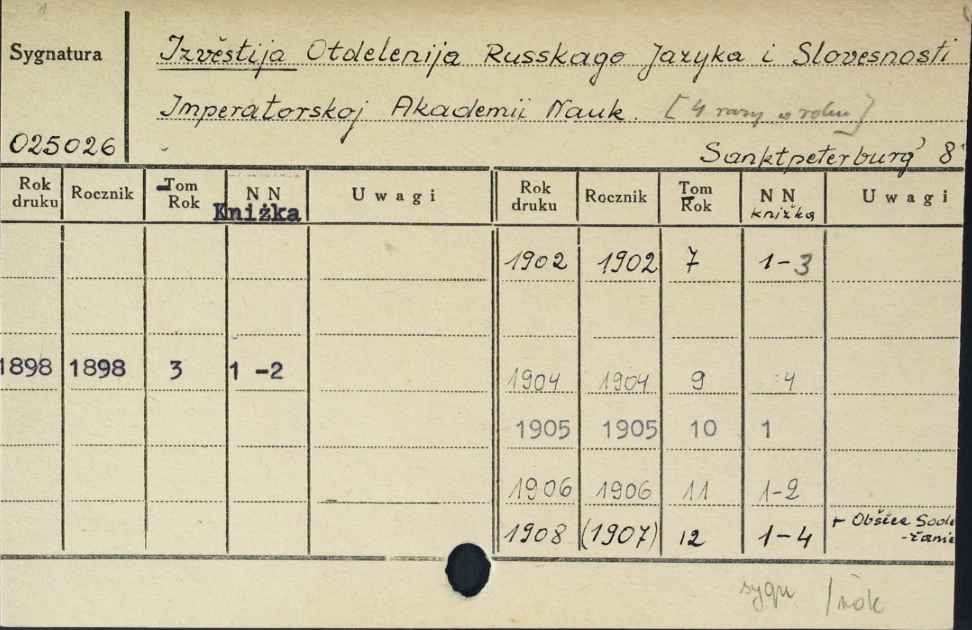 Sygnatura
Izvěstija Otdelenija Russkago Jazyka i Slovesnosti
Imperatorskoj Akademii Nauk. [4 razy w roku]
025026
Sanktpeterburg' 8°
Rok druku Rocznik Tom Rok N N Kniżka Uwagi Rok druku Rocznik Tom Rok N N kniżka Uwagi
1902 1902 7 1-3
1898 1898 3 1-2
1904 1904 9 4
1905 1905 10 1
1906 1906 11 1-2
1908 (1907) 12 1-4 + Obšćee Sode
-žanie
sygn /rok